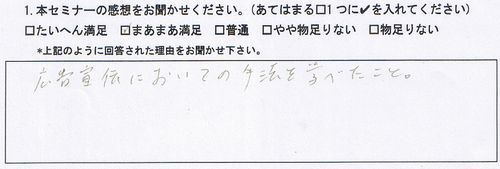 1. 本セミナーの感想をお聞かせください。(あてはまる□1つに✔を入れてください)
□たいへん満足 ☑まあまあ満足 □普通 □やや物足りない □物足りない
*上記のように回答された理由をお聞かせ下さい。
広告宣伝においての手法を学べたこと。